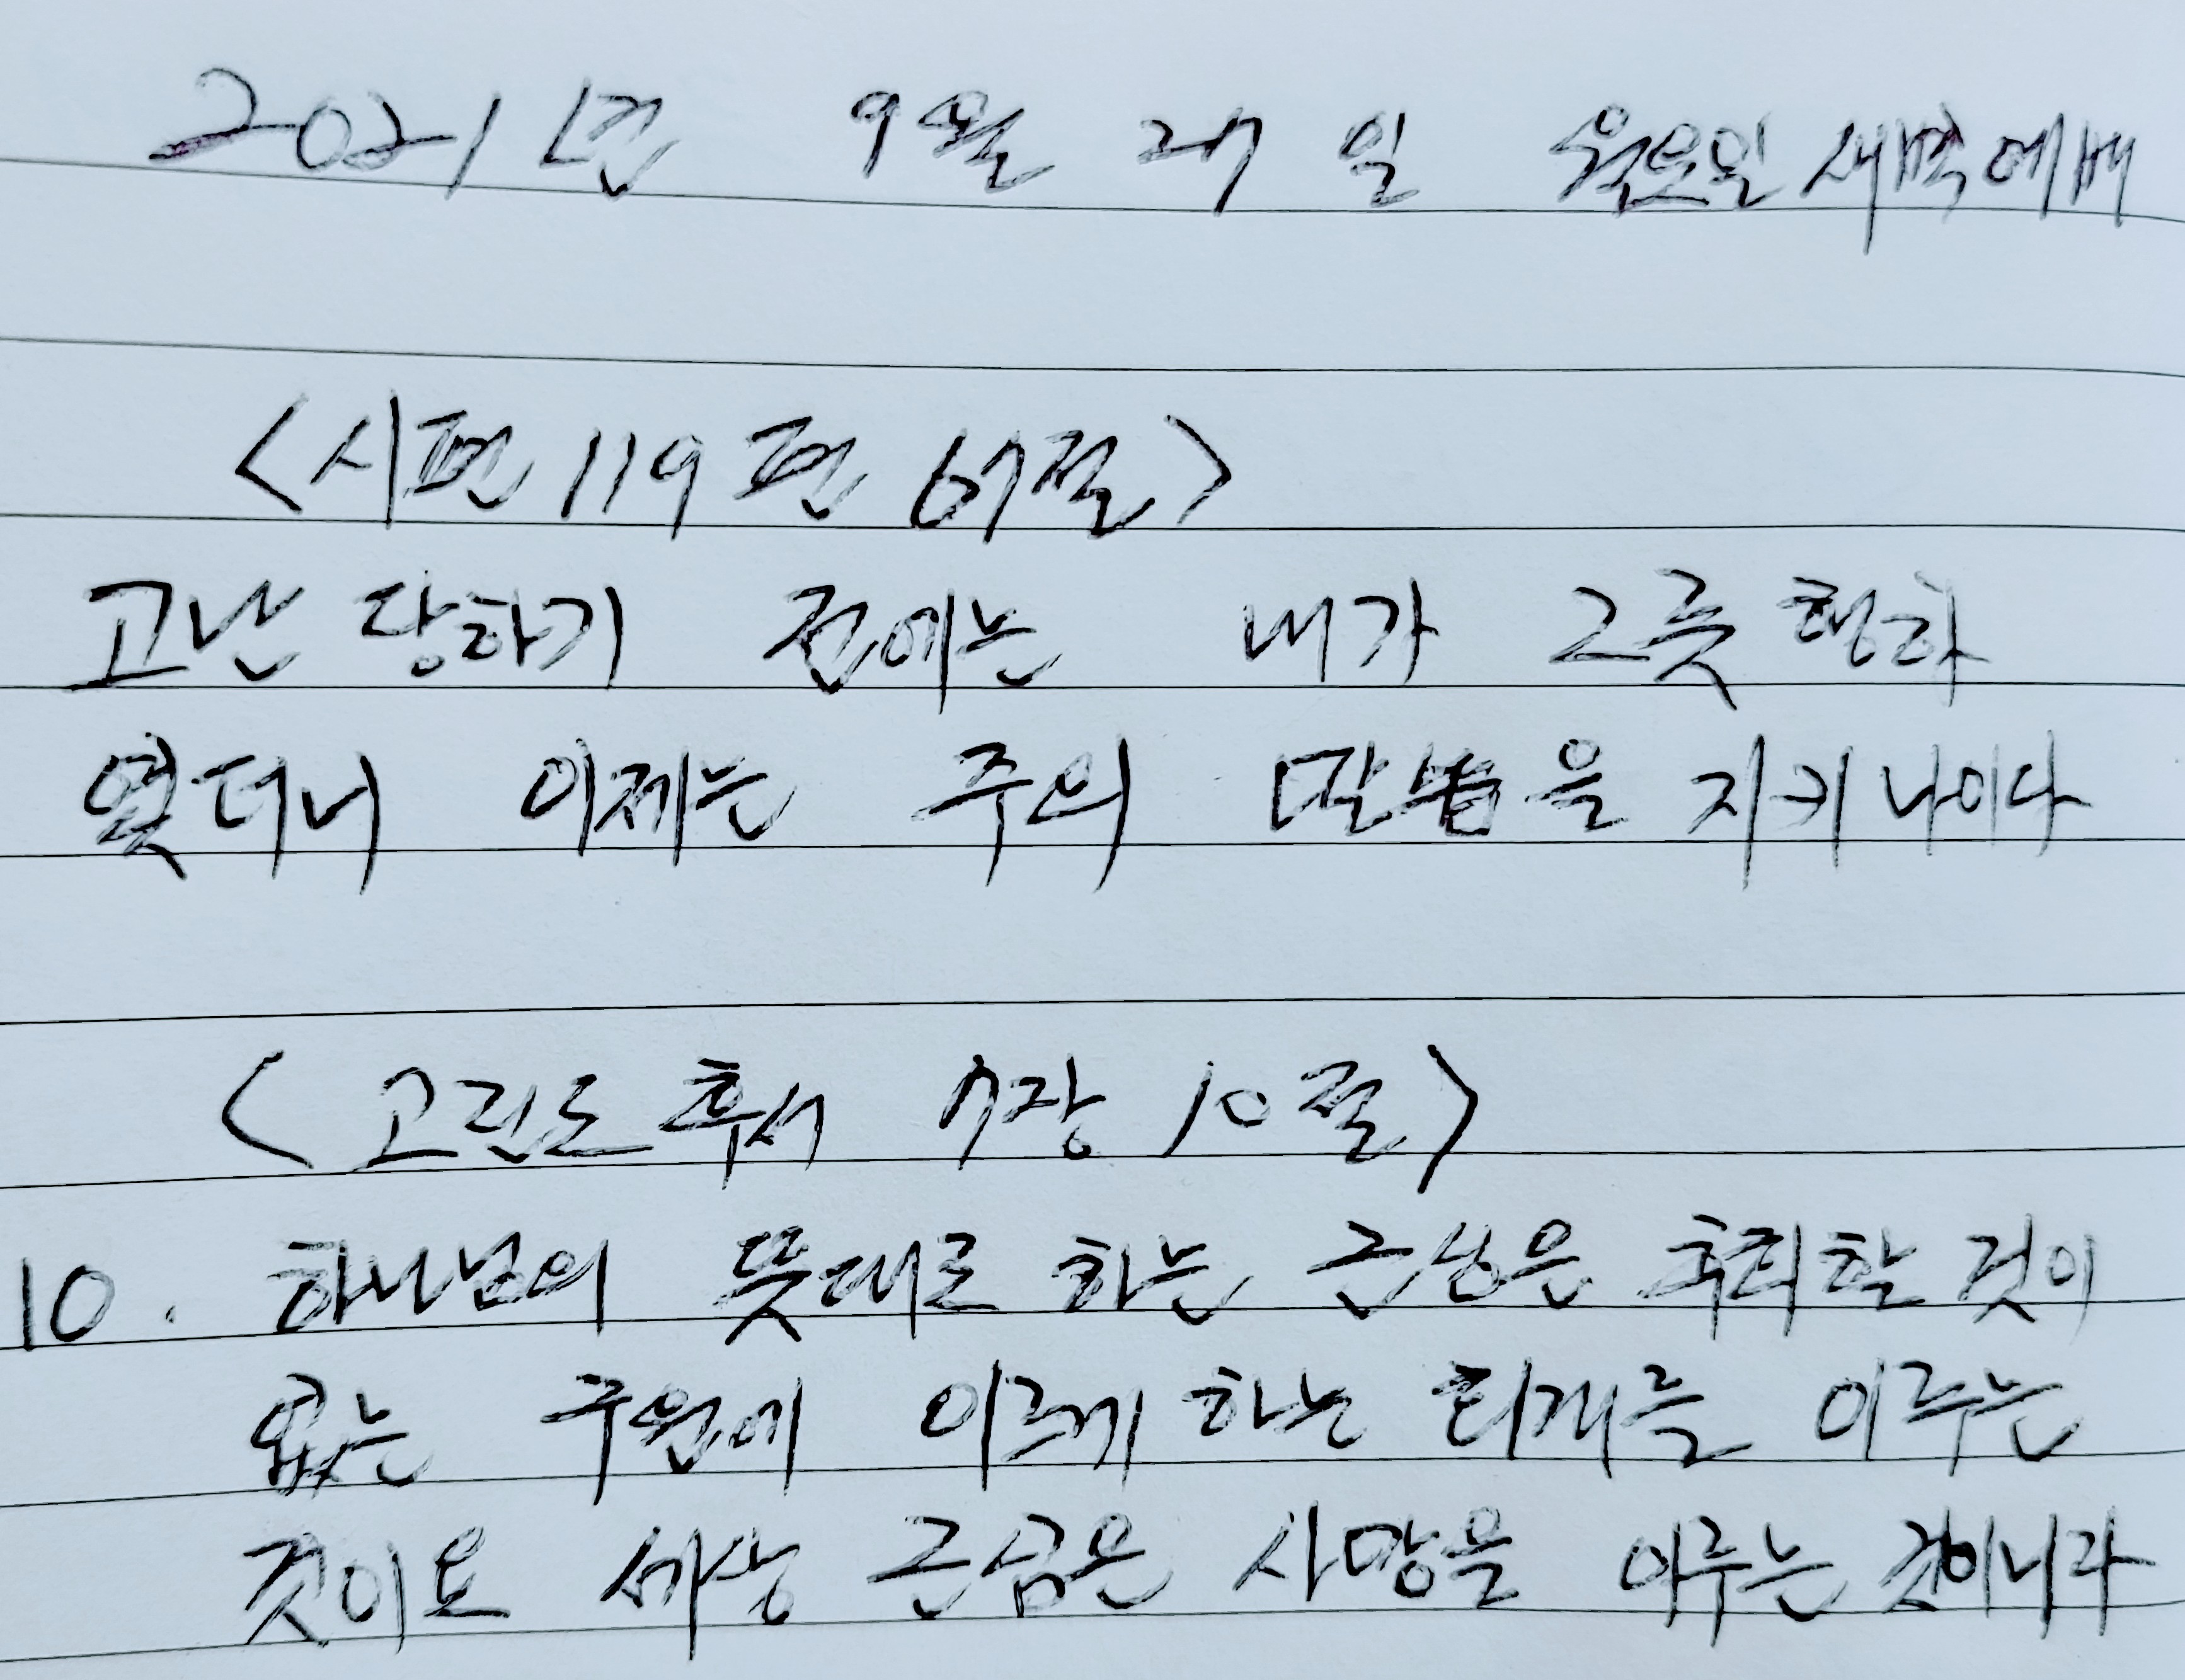 2021년 9월 27일 월요일 새벽예배
<시편 119편 67절>
고난 당하기 전에는 내가 그릇 행하
였더니 이제는 주의 말씀을 지키나이다
<고린도후서 7장 10절>
10. 하나님의 뜻대로 하는 근심은 후회할 것이
없는 구원에 이르게 하는 회개를 이루는
것이요 세상 근심은 사망을 이루는 것이니라